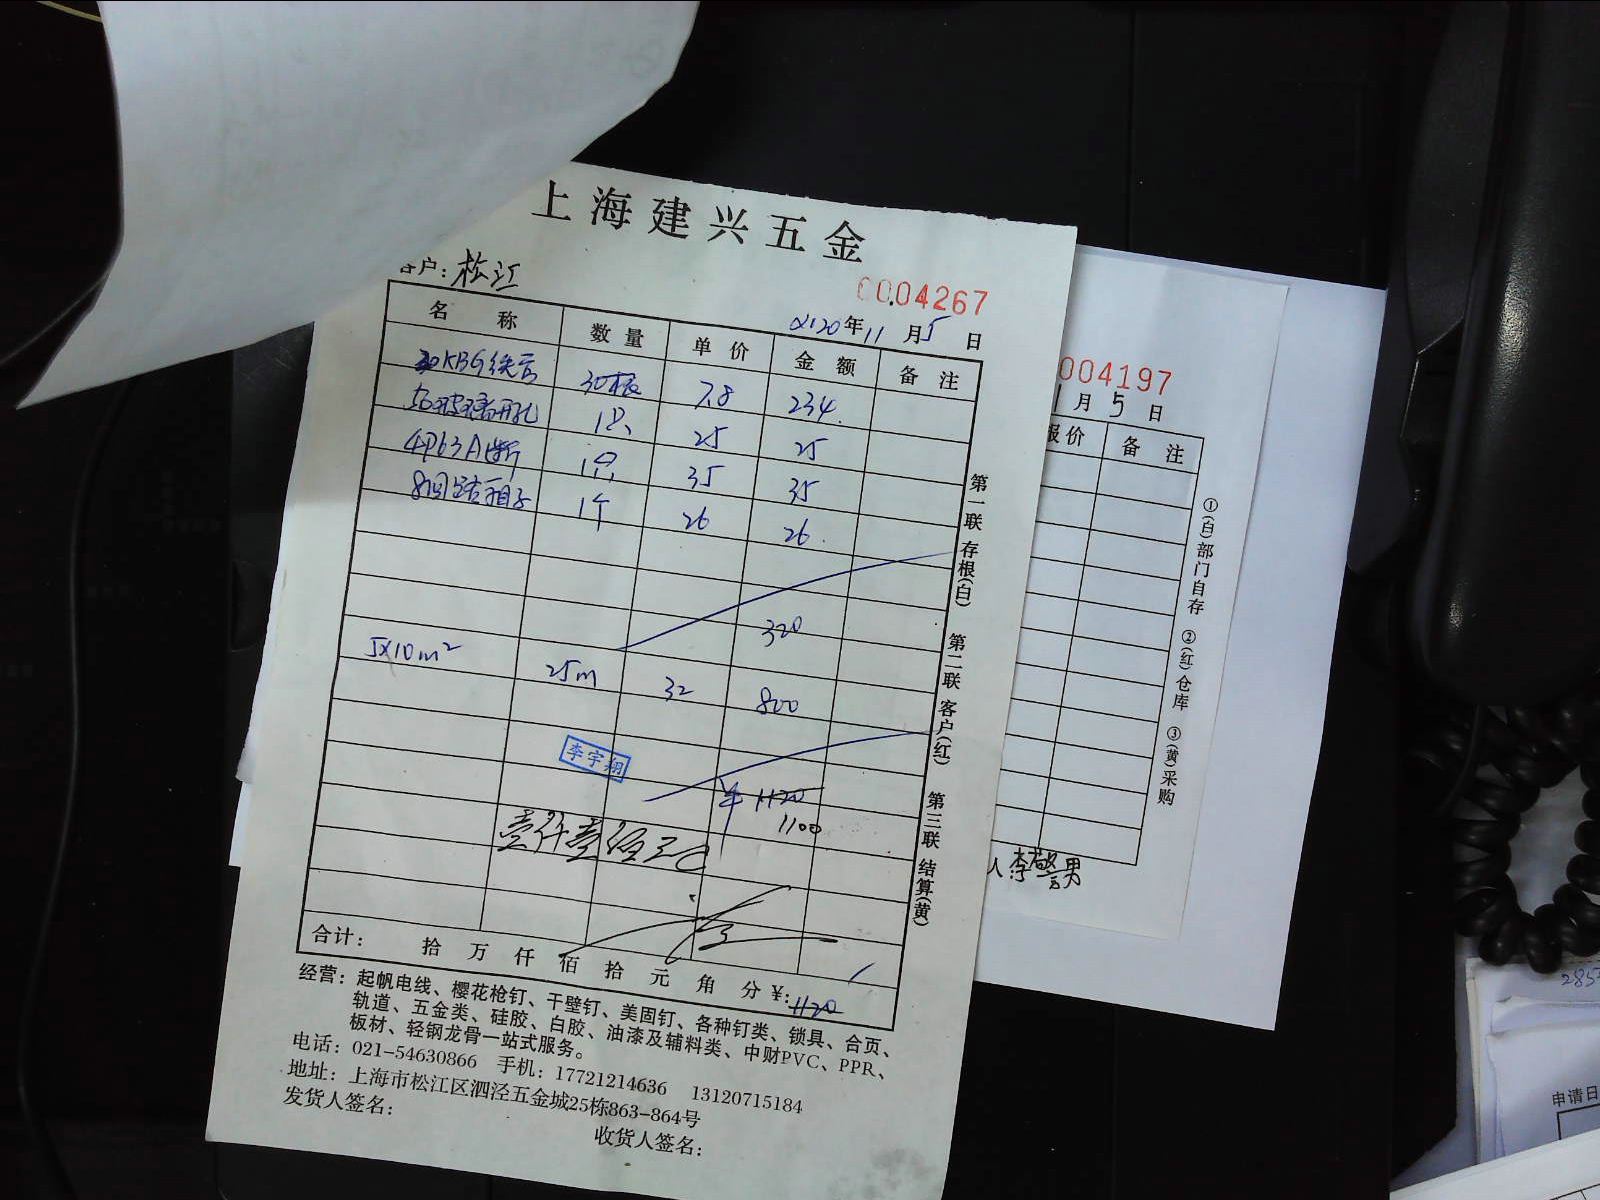 上海建兴五金
客户: 松江
0004267
2020年11月5日
名称 数量 单价 金额 备注
20KBG线管 30根 7.8 234.
50玻璃开孔 1只 25 25
4P63A断 1只 35 35
8回路箱子 1个 26 26.
320
5×10m² 25m 32 800
李宇翔
¥1120
1100
壹仟壹佰元
合计: 拾 万 仟 佰 拾 元 角 分 ¥: 1120
经营: 起帆电线、樱花枪钉、干壁钉、美固钉、各种钉类、锁具、合页、
轨道、五金类、硅胶、白胶、油漆及辅料类、中财PVC、PPR、
板材、轻钢龙骨一站式服务。
电话: 021-54630866 手机: 17721214636 13120715184
地址: 上海市松江区泗泾五金城25栋863-864号
发货人签名:
收货人签名:
第一联 存根(白) 第二联 客户(红) 第三联 结算(黄)
004197
1月5日
报价 备注
①(白)部门自存 ②(红)仓库 ③(黄)采购
人 李警男
申请日